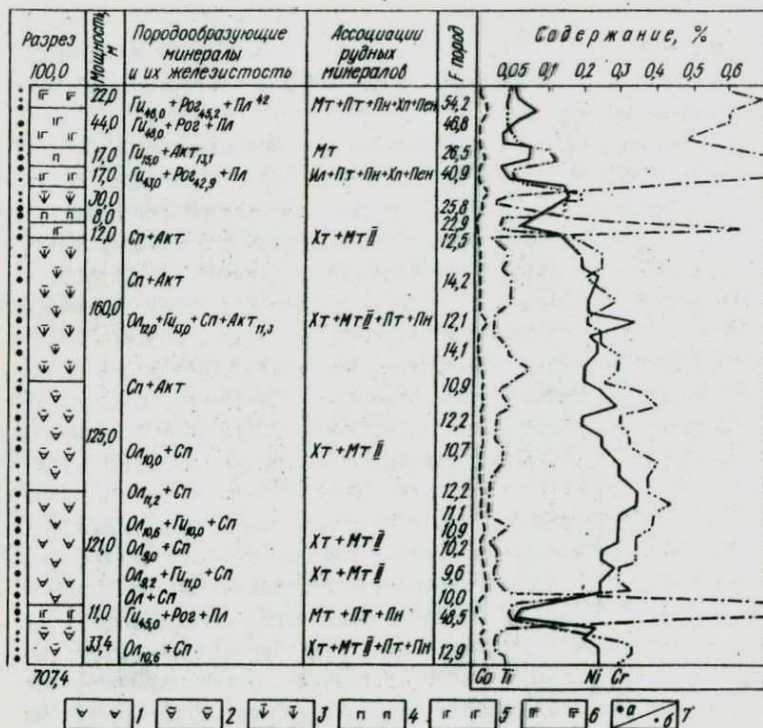 Разрез
100,0
Мощность, м
Породообразующие минералы и их железистость
Ассоциации рудных минералов
F пород
Содержание, %
0,05 0,1 0,2 0,3 0,4 0,5 0,6
22,0 Ги46,0+Рог45,2+Пл 42 Мт+Пт+Пн+Хп+Пен 54,2
44,0 Ги48,0+Рог+Пл 46,8
17,0 Ги15,0+Акт13,1 Мт 26,5
17,0 Ги43,0+Рог42,9+Пл Ил+Пт+Пн+Хп+Пен 40,9
30,0 25,8
8,0 22,9
12,0 Сп+Акт Хт+Мт II 12,5
Сп+Акт 14,2
160,0
Ол12,0+Ги13,0+Сп+Акт11,3 Хт+Мт II+Пт+Пн 12,1
14,1
Сп+Акт 10,9
12,2
125,0
Ол10,0+Сп Хт+Мт II 10,7
Ол11,2+Сп 12,2
11,1
Ол10,6+Ги10,0+Сп 10,9
121,0 Ол9,0+Сп Хт+Мт II 10,2
Ол9,2+Ги11,0+Сп Хт+Мт II 9,6
Ол+Сп 10,0
11,0 Ги45,0+Рог+Пл Мт+Пт+Пн 48,5
33,4 Ол10,6+Сп Хт+Мт II+Пт+Пн 12,9
707,4 Co Ti Ni Cr
1 2 3 4 5 6 а б 7